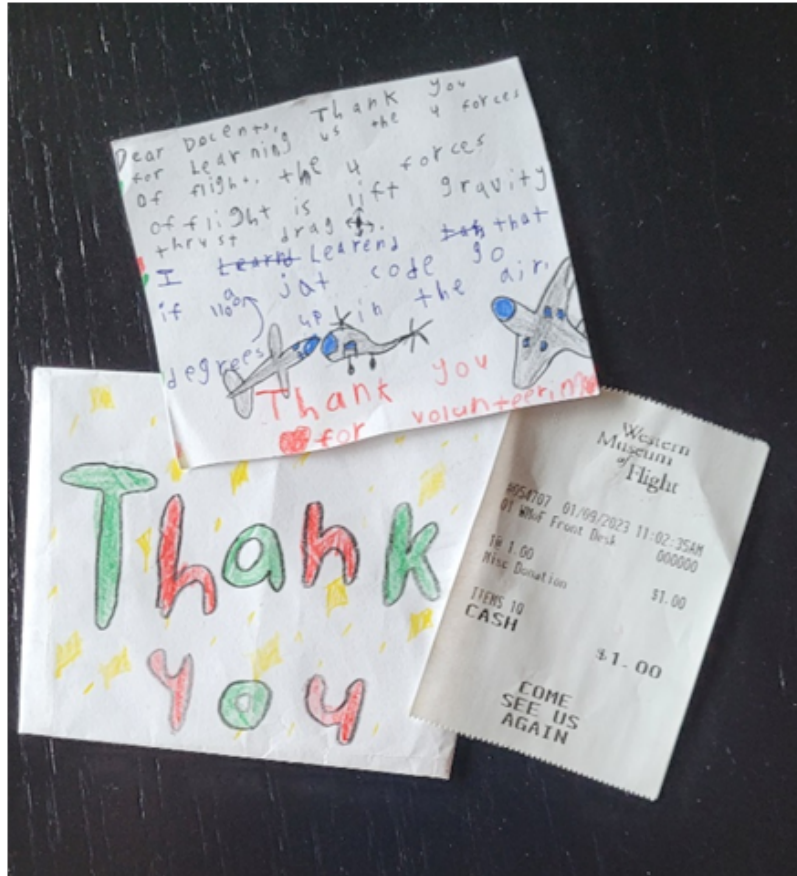 Dear Docents, Thank you
for Learning us the 4 forces
of flight. the 4 forces
of flight is lift gravity
thrust drag.
I Learnd Learend that
if a jat code go
degrees up in the air.
Thank you
for volunteering
Thank
you
Western
Museum
of
Flight
01/09/2023 11:02:35AM
01 WMoF Front Desk 000000
1@ 1.00
Misc Donation $1.00
ITEMS 1Q
CASH
$1.00
COME
SEE US
AGAIN